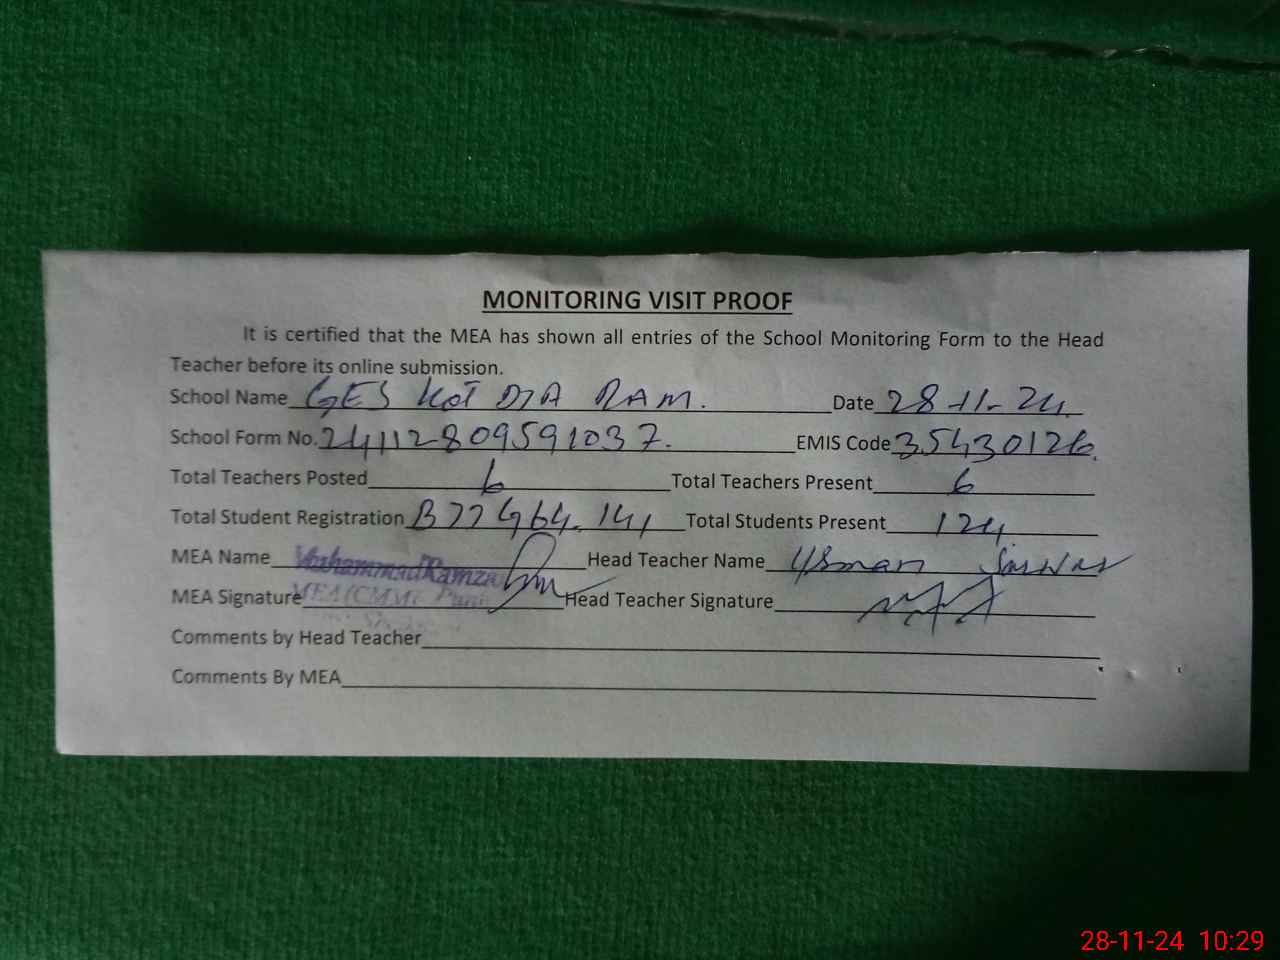 MONITORING VISIT PROOF
It is certified that the MEA has shown all entries of the School Monitoring Form to the Head
Teacher before its online submission.
School Name GES Kot DIA RAM. Date 28-11-24.
School Form No. 24112809591037. EMIS Code 35430126.
Total Teachers Posted 6 Total Teachers Present 6
Total Student Registration 141 Total Students Present 124
MEA Name Muhammad Ramzan Head Teacher Name Usman Sarwar
MEA Signature MEA (CMMF Head Teacher Signature
Comments by Head Teacher
Comments By MEA
28-11-24 10:29